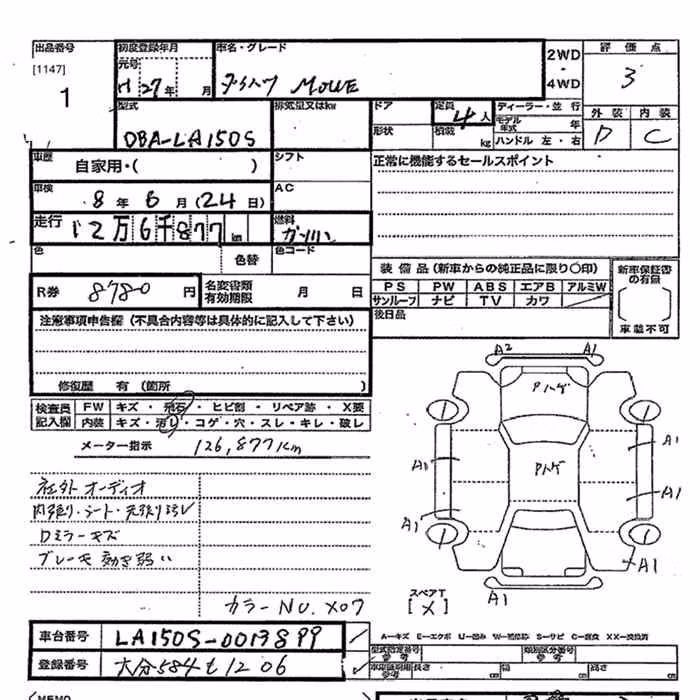 出品番号
[1147]
1
初度登録年月
元号
H 27 年 月
車名・グレード
ダイハツ MOVE
2WD
・
4WD
評 価 点
3
外 装 内 装
D C
型式
DBA-LA150S
排気量又はkw
ドア
形状
定員
4人
積載
kg
ディーラー・並 行
モデル年式 年
ハンドル 左・右
車歴
自家用・( )
シフト
正常に機能するセールスポイント
車検
8 年 6 月 (24 日)
AC
走行
12万6千877 km
燃料
ガソリン
色
色替
色コード
R券
8780 円
名変書類
有効期限 月 日
装 備 品 (新車からの純正品に限り○印)
PS PW ABS エアB アルミW
サンルーフ ナビ TV カワ
後日品
新車保証書
の有無
車載不可
注意事項申告欄 (不具合内容等は具体的に記入して下さい)
修復歴 有 (箇所 )
検査員
記入欄
FW キズ・飛石・ヒビ割・リペア跡・X要
内装 キズ・汚れ・コゲ・穴・スレ・キレ・破レ
メーター指示 126,877Km
社外オーディオ
内張り・シート・天張り汚レ
Dミラーキズ
ブレーキ効き弱い
カラーNO. X07
A2 A1
Pハゲ
Pハゲ
A1
A1
A1
A1
A1
A1
A1
スペアT
[X]
車台番号 LA150S-0013899
登録番号 大分584 も 1206
A-キズ E-エクボ U-凹み W-補修跡 S-サビ C-腐食 XX-交換済
型式指定番号
参考
類別区分番号
参考
長さ cm
幅 cm
高さ cm
MEMO